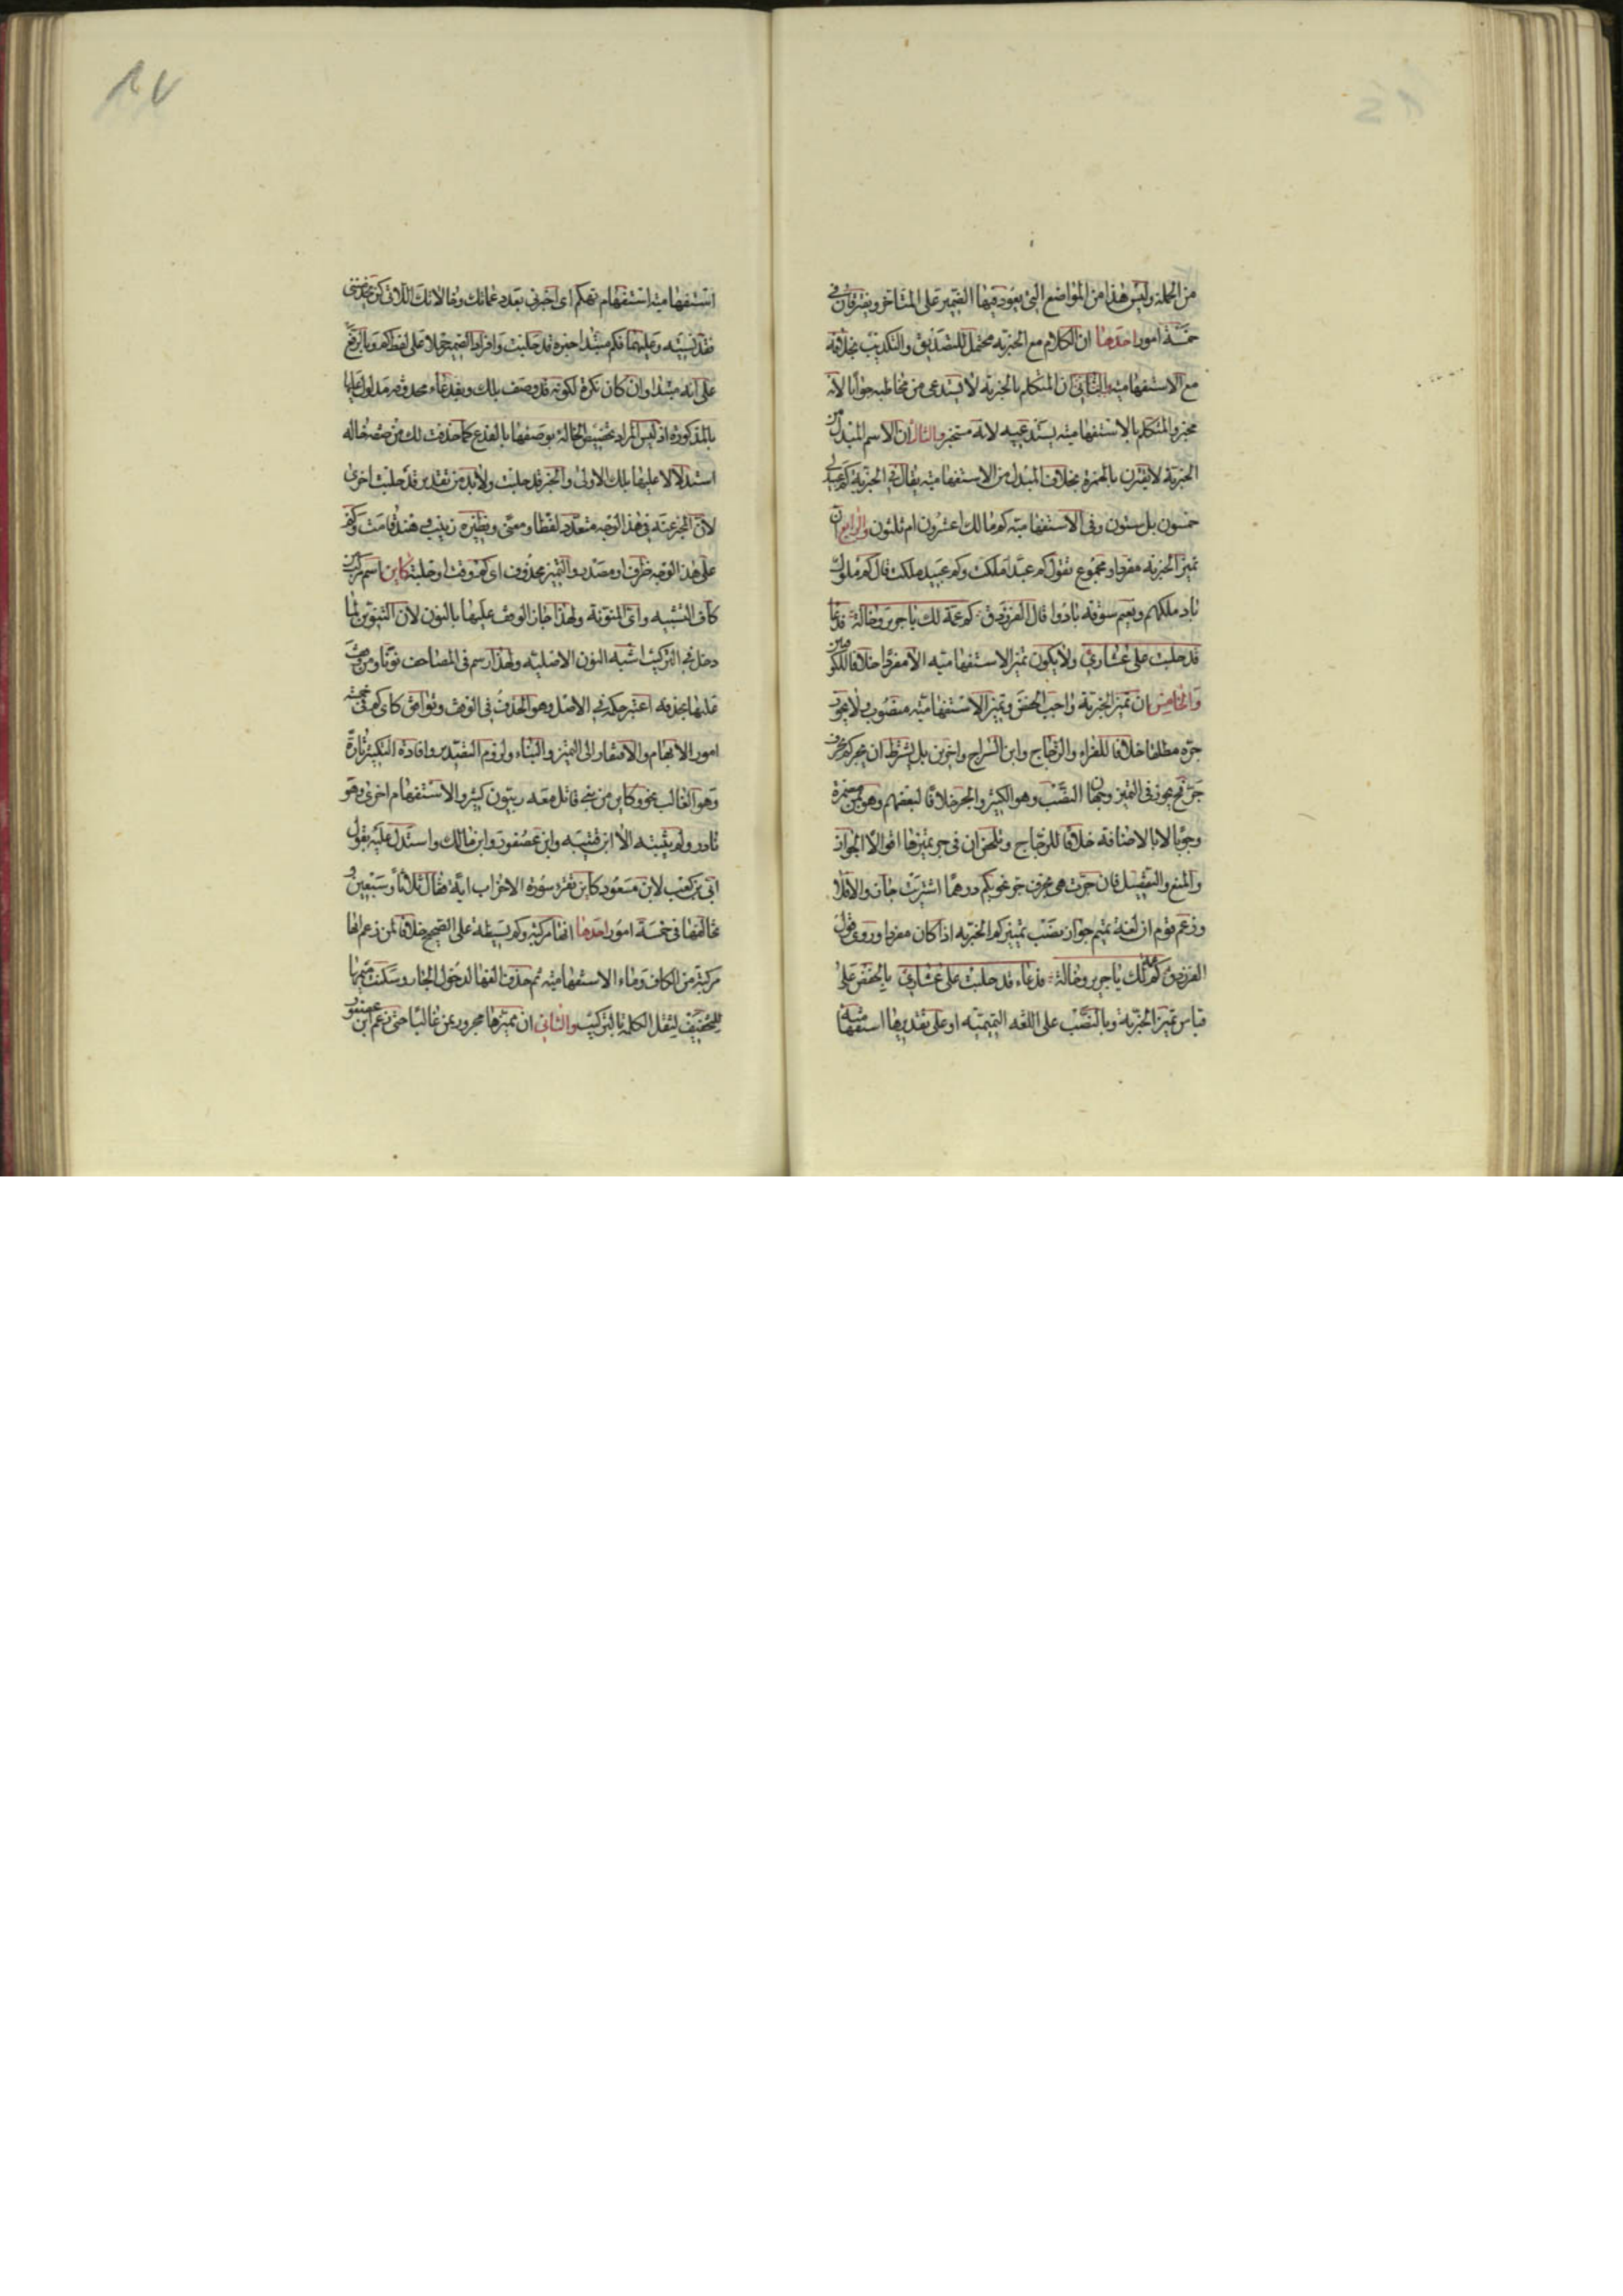 من الجملة وليس هذا من المواضع التى يعود فيها الضمير على المتاخر ويفترقان فى
خمسة امور احدها ان الكلام مع الخبرية محتمل للتصديق والتكذيب بخلافه
مع الاستفهامية والثانى ان المتكلم بالخبرية لا يستدعى من مخاطبه جوابا لانه
مخبر والمتكلم بالاستفهامية يستدعيه لانه مستخبر والثالث ان الاسم المبدل من
الخبرية لا يقترن بالهمزة بخلاف المبدل من الاستفهامية يقال فى الخبرية كم عبيد لى
خمسون بل ستون وفى الاستفهامية كم مالك اعشرون ام ثلثون والرابع ان
تميز الخبرية مفرد او مجموع تقول كم عبد ملكت وكم عبيد ملكت قال كم ملوك
باد ملكهم ونعيم سوقة بادوا قال الفرزدق كم عمة لك يا جرير وخالة فدعا
قد حلبت على عشارى ولا يكون تميز الاستفهامية الا مفردا خلافا للكوفيين
والخامس ان تميز الخبرية واجب الخفض وتميز الاستفهامية منصوب ولا يجوز
جره مطلقا خلافا للفراء والزجاج وابن السراج واخرين بل يشترط ان يجر كم بحرف
جر فح يجوز فى التميز وجهان النصب وهو الكثير والجر خلافا لبعضهم وهو بمن مضمرة
وجوبا لا بالاضافة خلافا للزجاج وتلخص ان فى جر تميزها اقوالا الجواز
والمنع والتفصيل فان جرت هى بحرف جر نحو بكم درهما اشتريت جاز والا فلا
وزعم قوم ان لغة تميم جواز نصب تمييز كم الخبرية اذا كان مفردا وروى قول
الفرزدق كم عمة لك يا جرير وخالة فدعاء قد حلبت على عشارى بالخفض على
قياس تميز الخبرية وبالنصب على اللغة التميمية او على تقديرها استفهامية
استفهامية استفهام تهكم اى اخبرنى بعدد عماتك وخالاتك اللاتى كن يخدمننى
فقد نسيته وعليهما فكم مبتدا خبره قد حلبت وافراد الضمير حملا على لفظ كم وبالرفع
على انه مبتدا وان كان نكرة لكونه قد وصف بلك وبفدعاء محذوفة مدلول عليها
بالمذكورة اذ ليس المراد تخصيص الخالة بوصفها بالفدع كما حذفت لك من صفة خالة
استدلالا عليها بلك الاولى والخبر قد حلبت ولا بد من تقدير قد حلبت اخرى
لان المخبر عنه فى هذا الوجه متعدد لفظا ومعنى ونظيره زينب وهند قامت وكم
على هذا الوجه ظرف او مصدر والتميز محذوف اى كم وقت او حلبة كاين اسم مركب من
كاف التشبيه واى المنونة ولهذا جاز الوقف عليها بالنون لان التنوين لما
دخل فى التركيب اشبه النون الاصلية ولهذا رسم فى المصاحف نونا ومن وقف
عليها بحذفه اعتبر حكمه فى الاصل وهو الحذف فى الوقف وتوافق كاى كم فى خمسة
امور الابهام والافتقار الى التميز والبناء ولزوم التصدير وافادة التكثير تارة
وهو الغالب نحو وكاين من نبى قاتل معه ربيون كثير والاستفهام اخرى وهو
نادر ولم يثبته الا ابن قتيبة وابن عصفور وابن مالك واستدل عليه بقول
ابى بن كعب لابن مسعود كاين تقرء سورة الاحزاب اية فقال ثلاثا وسبعين و
تخالفها فى خمسة امور احدها انها مركبة وكم بسيطة على الصحيح خلافا لمن زعم انها
مركبة من الكاف وماء الاستفهامية ثم حذفت الفها لدخول الجار وسكنت ميمها
للتخفيف لثقل الكلمة بالتركيب والثانى ان مميزها مجرور بمن غالبا حتى زعم ابن عصفور